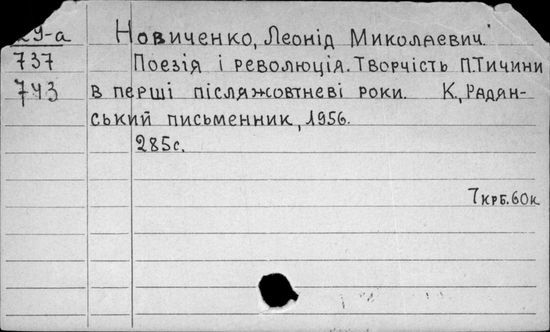 29-а Новиченко, Леонід Миколаевич.
737 Поезія і революція. Творчість П. Тичини
743 в перші післяжовтневі роки. К, Радян-
ський письменник, 1956.
285с.
7 крб. 60к